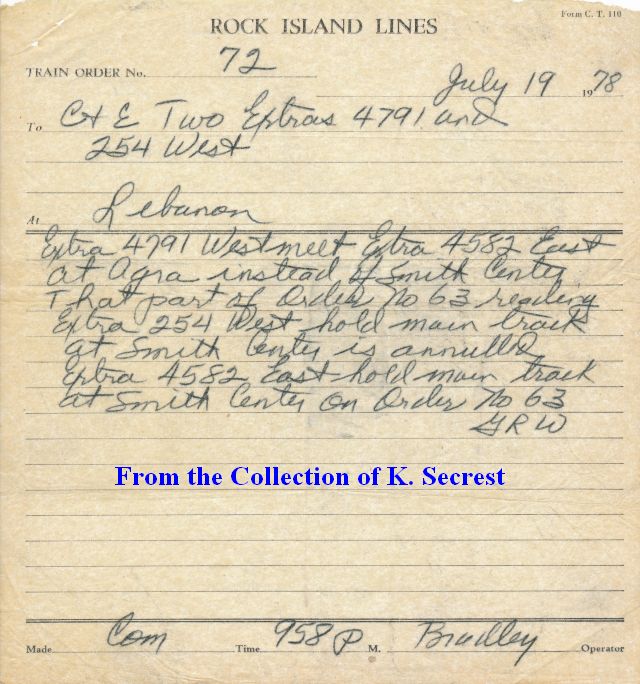 Form C. T. 110
ROCK ISLAND LINES
TRAIN ORDER No. 72
July 19 1978
To C&E Two Extras 4791 and
254 West
At Lebanon
Extra 4791 West meet Extra 4582 East
at Agra instead of Smith Center
That part of Order No 63 reading
Extra 254 West hold main track
at Smith Center is annulled
Extra 4582 East hold main track
at Smith Center on Order No 63
GRW
From the Collection of K. Secrest
Made Com Time 958 P M. Bradley Operator